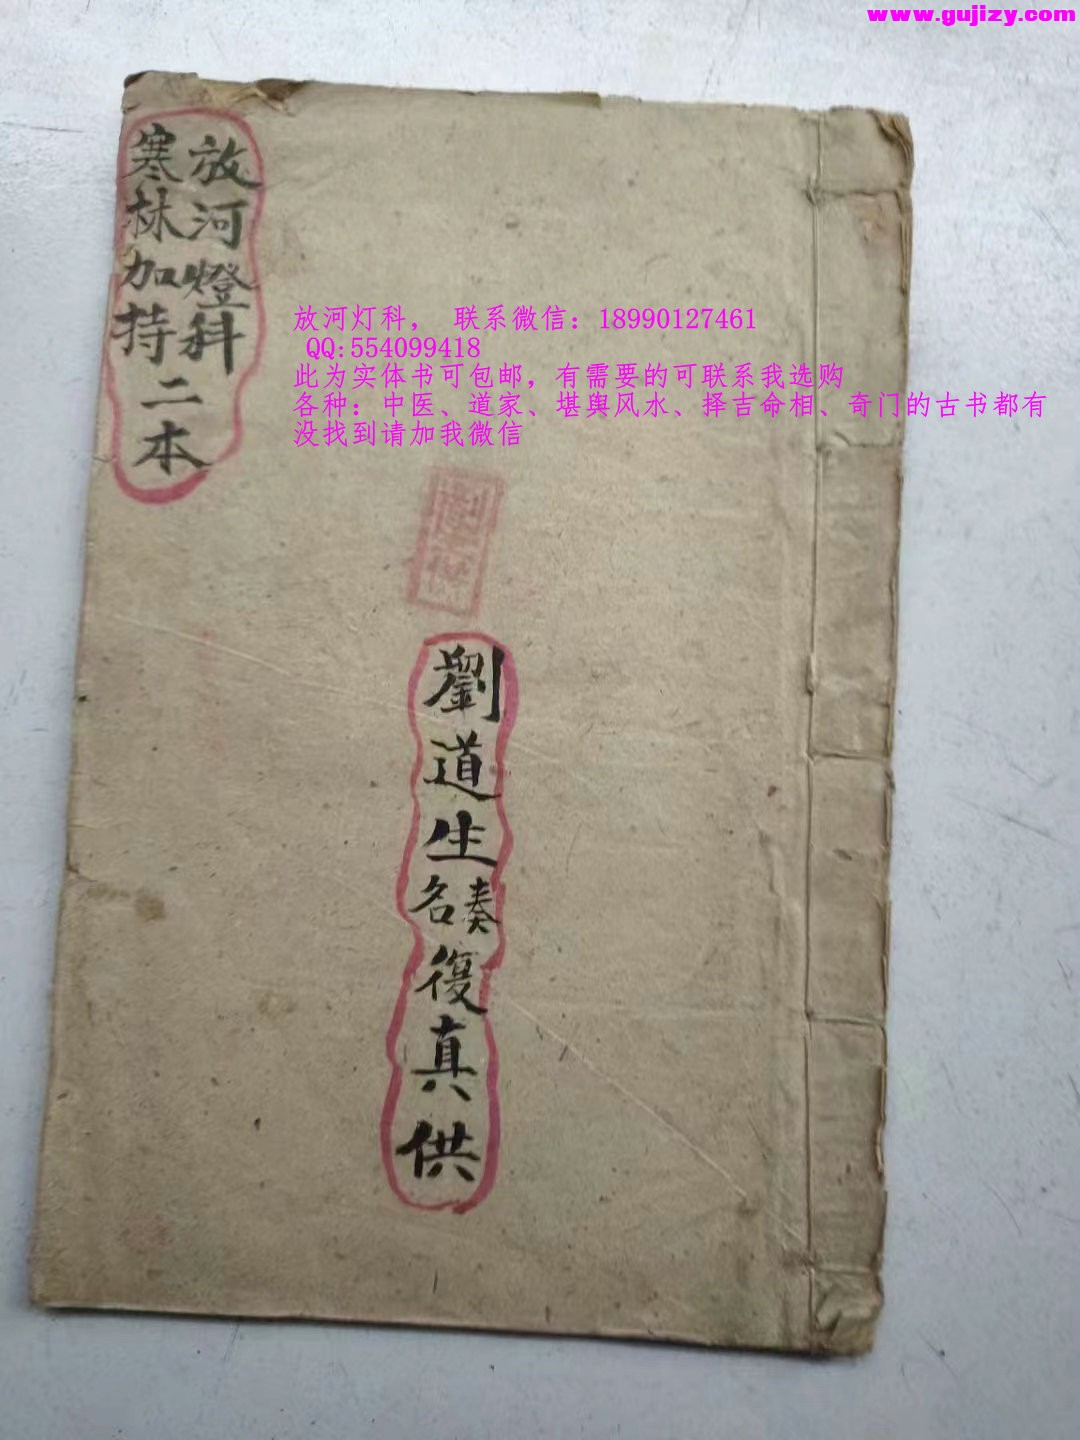 www.gujizy.com
放河燈科
寒林加持二本
放河灯科， 联系微信：18990127461
QQ:554099418
此为实体书可包邮，有需要的可联系我选购
各种：中医、道家、堪舆风水、择吉命相、奇门的古书都有
没找到请加我微信
劉道生奏名復真供